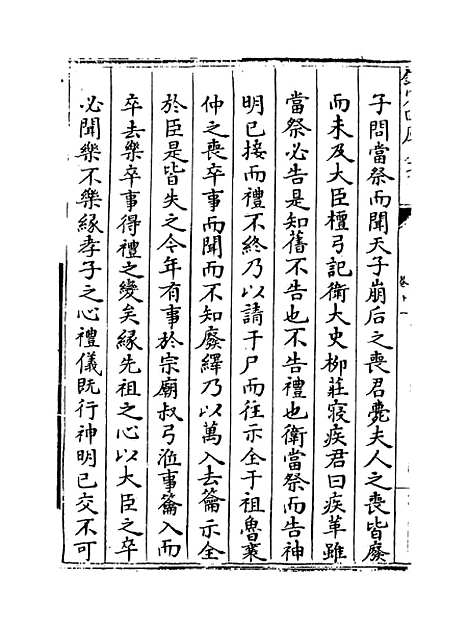 子問當祭而聞天子崩后之喪君薨夫人之喪皆廢
而未及大臣檀弓記衛大史柳莊寢疾君曰疾革雖
當祭必告是知舊不告也不告禮也衛當祭而告神
明已接而禮不終乃以請于尸而往示全于祖魯東
仲之喪卒事而聞而不知廢繹乃以萬入去籥示全
於臣是皆失之今年有事於宗廟叔弓涖事籥入而
卒去樂卒事得禮之變矣緣先祖之心以大臣之卒
必聞樂不樂緣孝子之心禮儀既行神明已交不可
欽定四庫全書
卷十一